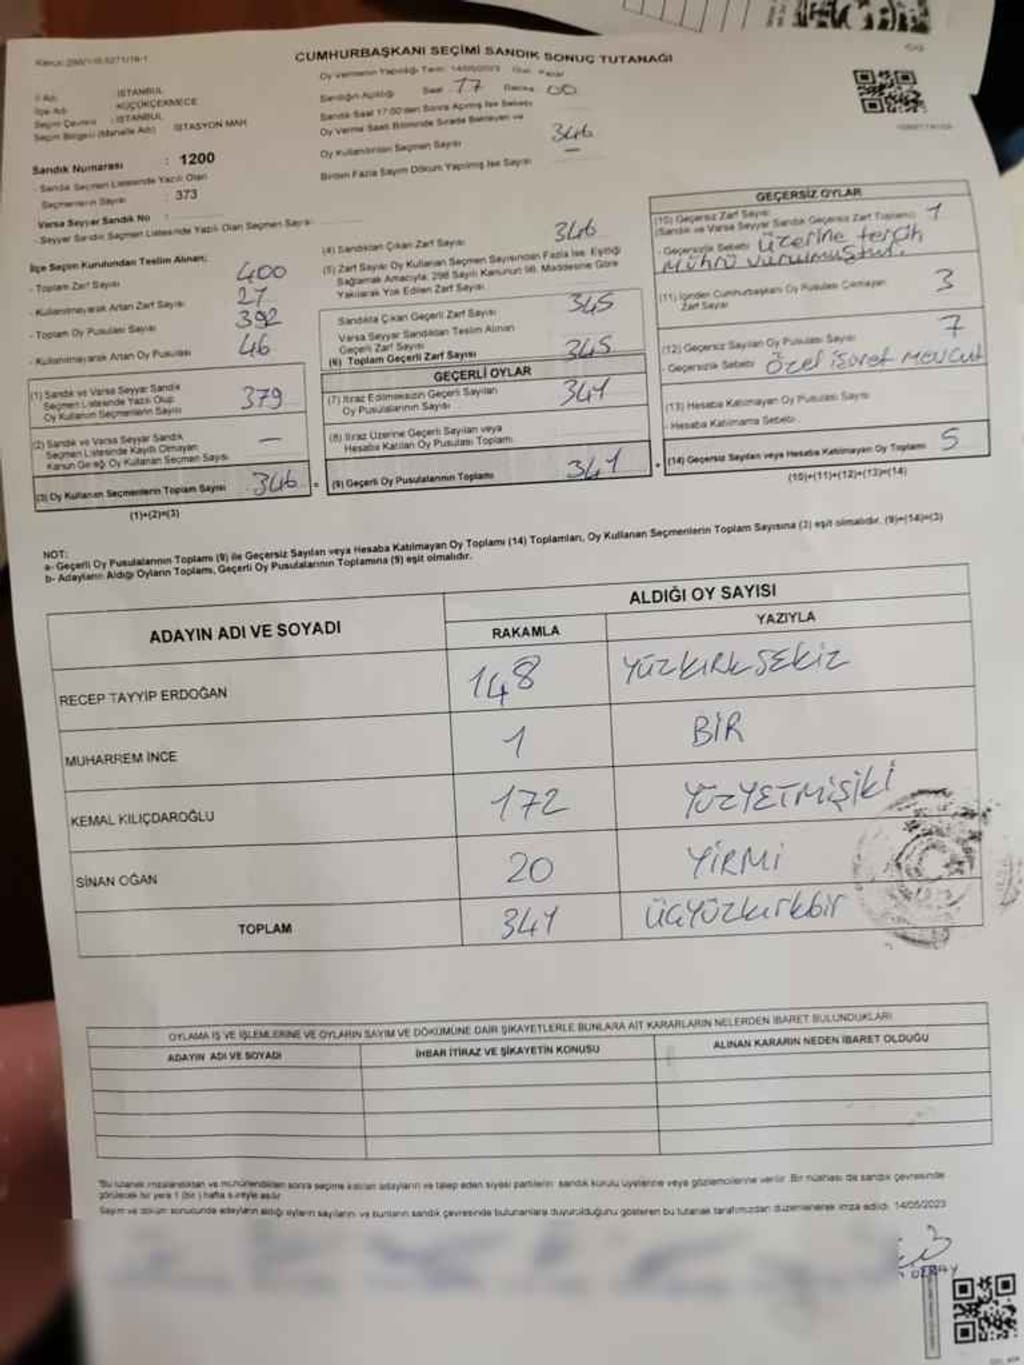 CUMHURBAŞKANI SEÇİMİ SANDIK SONUÇ TUTANAĞI
İl Adı : İSTANBUL
İlçe Adı : KÜÇÜKÇEKMECE
Seçim Çevresi : İSTANBUL
Seçim Bölgesi (Mahalle Adı) : İSTASYON MAH
Oy Vermenin Yapıldığı Tarih: 14/05/2023
Sandığın Açıldığı Saat 17 Dakika 00
Sandık Saat 17:00'den Sonra Açılmış İse Sebebi
Oy Verme Saati Bitiminde Sırada Bekleyen ve
Oy Kullandırılan Seçmen Sayısı 346
Birden Fazla Sayım Döküm Yapılmış İse Sayısı —
Sandık Numarası : 1200
- Sandık Seçmen Listesinde Yazılı Olan
Seçmenlerin Sayısı : 373
Varsa Seyyar Sandık No :
- Seyyar Sandık Seçmen Listesinde Yazılı Olan Seçmen Sayısı :
İlçe Seçim Kurulundan Teslim Alınan;
- Toplam Zarf Sayısı 400
- Kullanılmayarak Artan Zarf Sayısı 27
- Toplam Oy Pusulası Sayısı 392
- Kullanılmayarak Artan Oy Pusulası 46
(1) Sandık ve Varsa Seyyar Sandık
Seçmen Listesinde Yazılı Olup
Oy Kullanan Seçmenlerin Sayısı 379
(2) Sandık ve Varsa Seyyar Sandık
Seçmen Listesinde Kayıtlı Olmayan
Kanun Gereği Oy Kullanan Seçmen Sayısı —
(3) Oy Kullanan Seçmenlerin Toplam Sayısı 346 =
(1)+(2)=(3)
(4) Sandıktan Çıkan Zarf Sayısı 346
(5) Zarf Sayısı Oy Kullanan Seçmen Sayısından Fazla İse, Eşitliği
Sağlamak Amacıyla, 298 Sayılı Kanunun 98. Maddesine Göre
Yakılarak Yok Edilen Zarf Sayısı
Sandıkta Çıkan Geçerli Zarf Sayısı 345
Varsa Seyyar Sandıktan Teslim Alınan
Geçerli Zarf Sayısı
(6) Toplam Geçerli Zarf Sayısı 345
GEÇERLİ OYLAR
(7) İtiraz Edilmeksizin Geçerli Sayılan
Oy Pusulalarının Sayısı 341
(8) İtiraz Üzerine Geçerli Sayılan veya
Hesaba Katılan Oy Pusulası Toplamı
(9) Geçerli Oy Pusulalarının Toplamı 341 +
GEÇERSİZ OYLAR
(10) Geçersiz Zarf Sayısı
(Sandık ve Varsa Seyyar Sandık Geçersiz Zarf Toplamı) 1
- Geçersizlik Sebebi Üzerine tercih
mührü vurulmuştur.
(11) İçinden Cumhurbaşkanı Oy Pusulası Çıkmayan
Zarf Sayısı 3
(12) Geçersiz Sayılan Oy Pusulası Sayısı 7
- Geçersizlik Sebebi Özel işaret mevcut
(13) Hesaba Katılmayan Oy Pusulası Sayısı
- Hesaba Katılmama Sebebi
(14) Geçersiz Sayılan veya Hesaba Katılmayan Oy Toplamı 5
(10)+(11)+(12)+(13)=(14)
NOT:
a- Geçerli Oy Pusulalarının Toplamı (9) ile Geçersiz Sayılan veya Hesaba Katılmayan Oy Toplamı (14) Toplamları, Oy Kullanan Seçmenlerin Toplam Sayısına (3) eşit olmalıdır. (9)+(14)=(3)
b- Adayların Aldığı Oyların Toplamı, Geçerli Oy Pusulalarının Toplamına (9) eşit olmalıdır.
ADAYIN ADI VE SOYADI
ALDIĞI OY SAYISI
RAKAMLA YAZIYLA
RECEP TAYYİP ERDOĞAN 148 YÜZKIRKSEKİZ
MUHARREM İNCE 1 BİR
KEMAL KILIÇDAROĞLU 172 YÜZYETMİŞİKİ
SİNAN OĞAN 20 YİRMİ
TOPLAM 341 ÜÇYÜZkırkbir
OYLAMA İŞ VE İŞLEMLERİNE VE OYLARIN SAYIM VE DÖKÜMÜNE DAİR ŞİKAYETLERLE BUNLARA AİT KARARLARIN NELERDEN İBARET BULUNDUKLARI
ADAYIN ADI VE SOYADI İHBAR İTİRAZ VE ŞİKAYETİN KONUSU ALINAN KARARIN NEDEN İBARET OLDUĞU
*Bu tutanak imzalandıktan ve mühürlendikten sonra seçime katılan adayların ve talep eden siyasi partilerin sandık kurulu üyelerine veya gözlemcilerine verilir. Bir nüshası da sandık çevresinde
görülecek bir yere 1 (bir) hafta süreyle asılır
Sayım ve döküm sonucunda adayların aldığı oyların sayıları ve bunların sandık çevresinde bulunanlara duyurulduğunu gösteren bu tutanak tarafımızdan düzenlenerek imza edildi. 14/05/2023